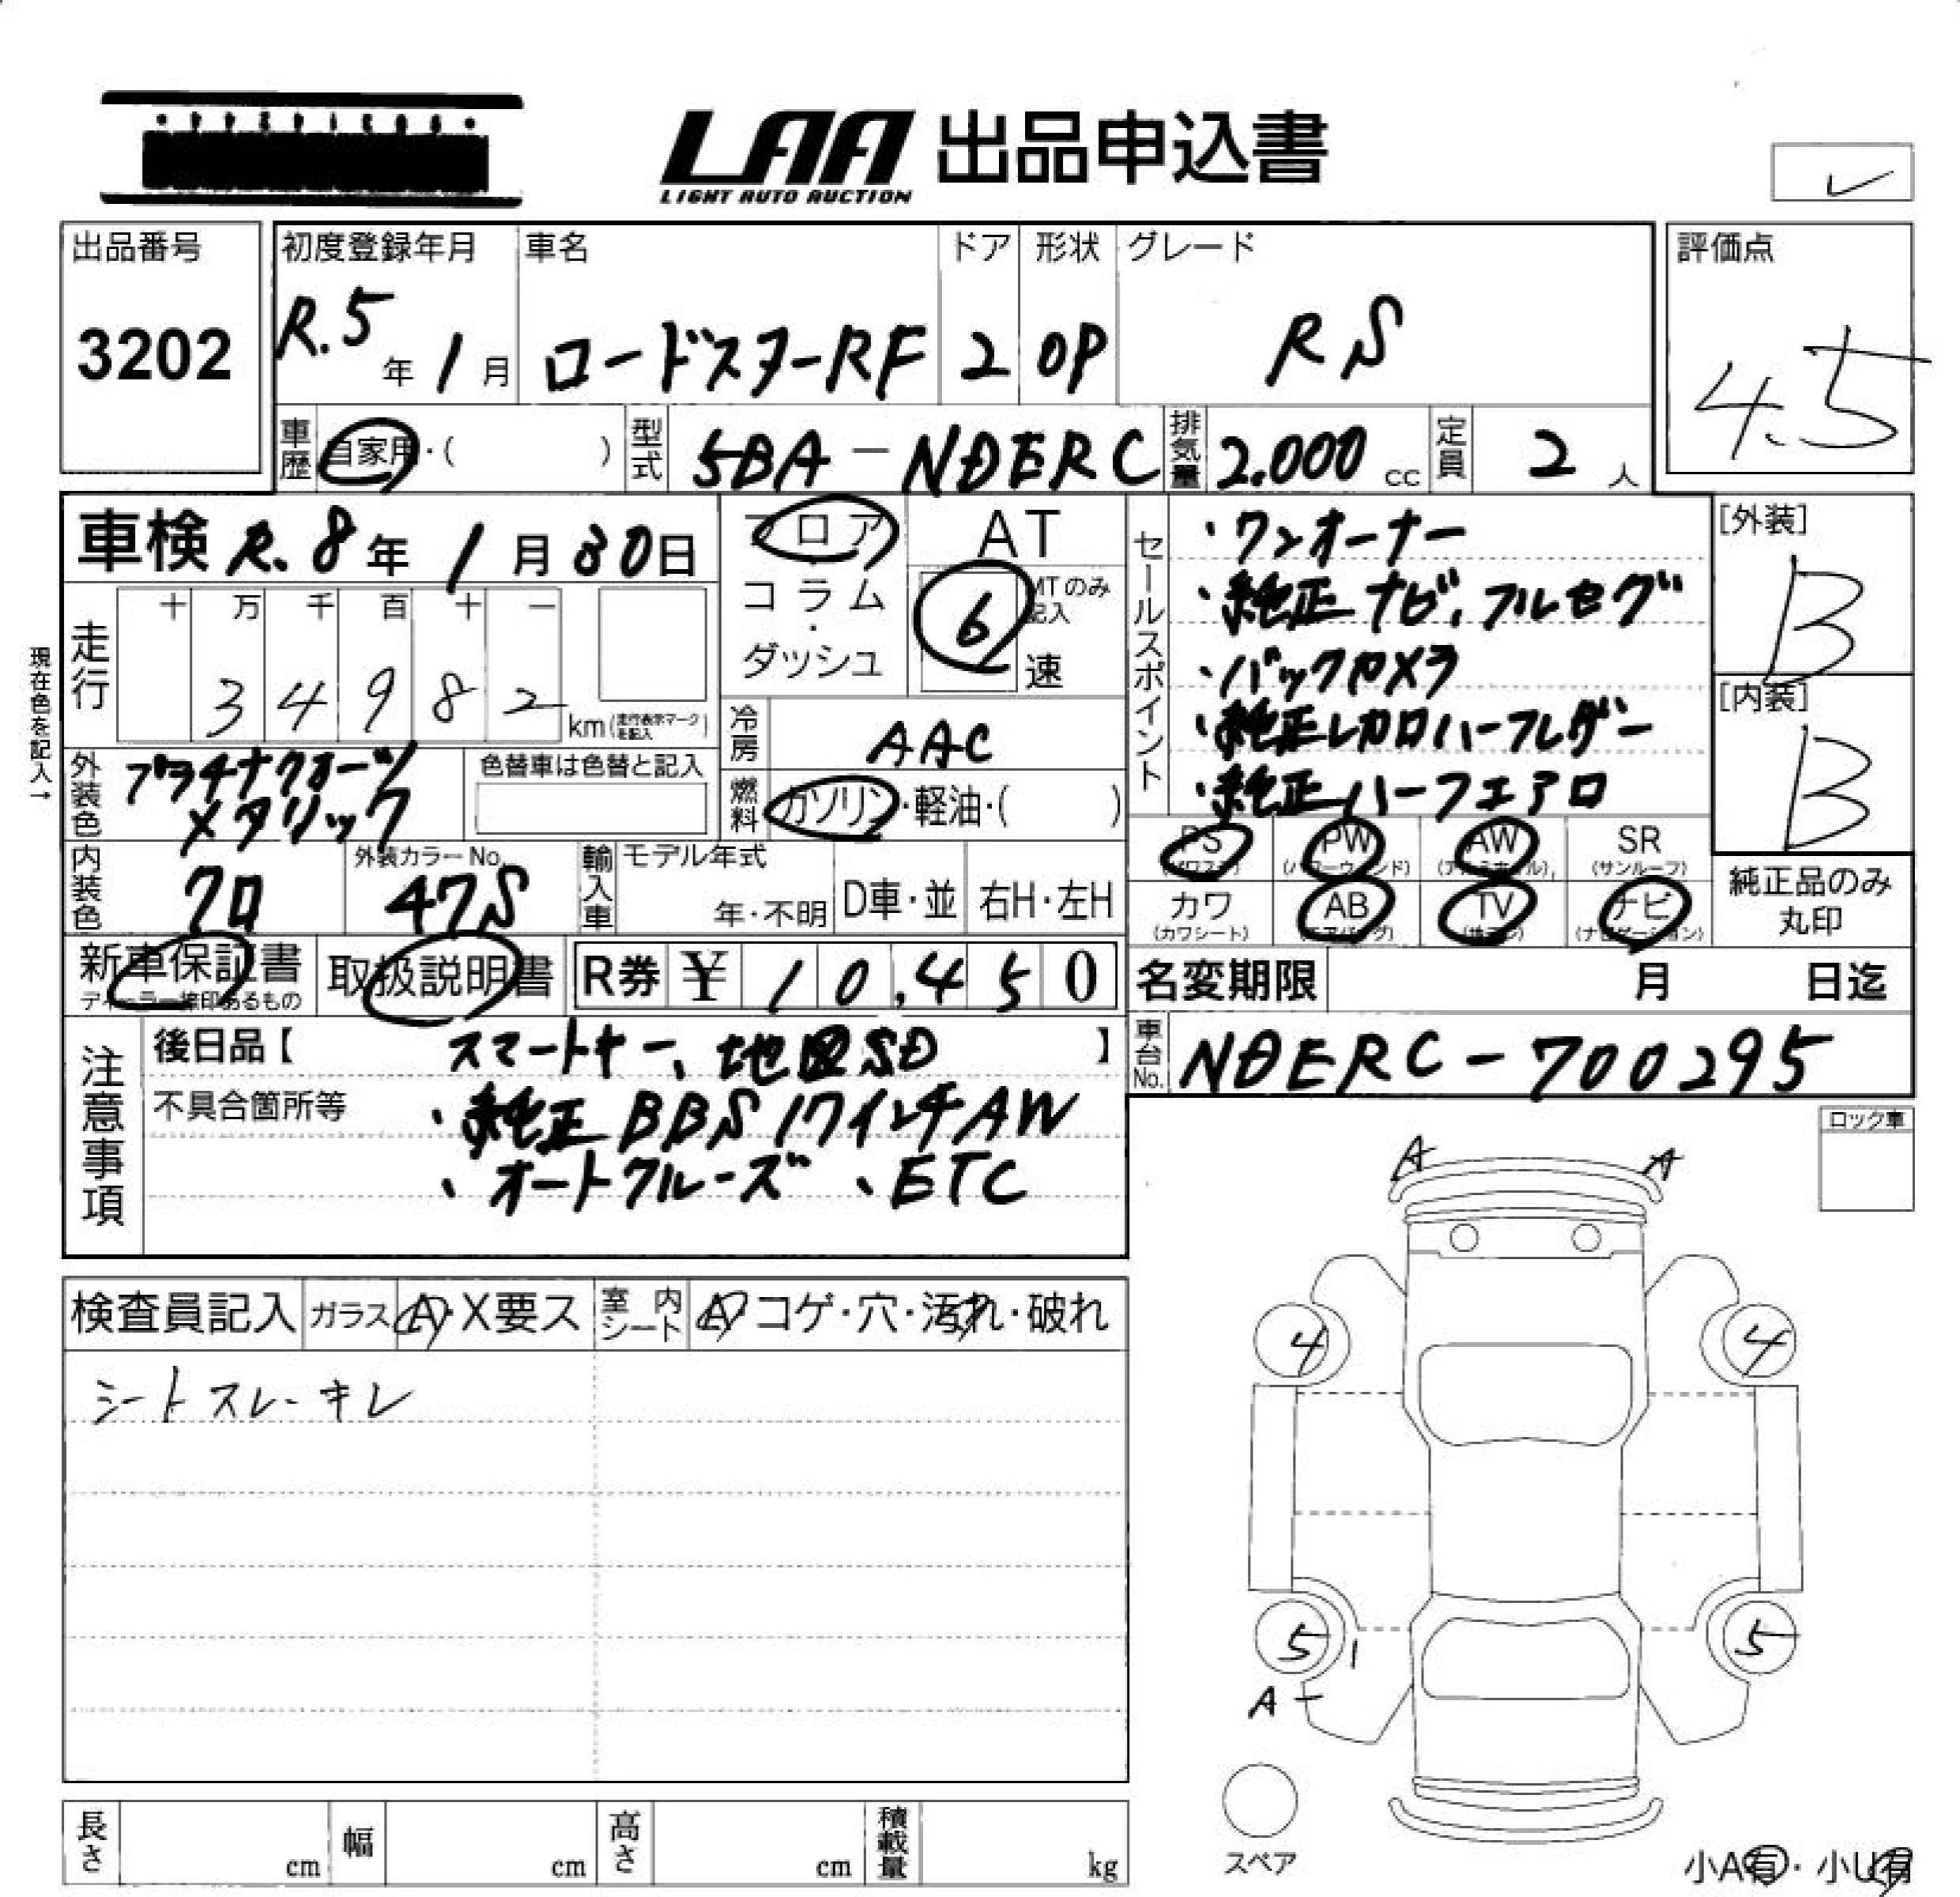 LAA 出品申込書
LIGHT AUTO AUCTION
出品番号
3202
初度登録年月
R.5年1月
車名
ロードスターRF
ドア
2
形状
OP
グレード
RS
評価点
4.5
車歴 自家用・( )
型式 5BA-NDERC
排気量 2.000 cc
定員 2人
車検 R.8年1月30日
現在色を記入→
走行
十 万 千 百 十 一
3 4 9 8 2
km(走行表示マークを記入)
フロア
コラム
・
ダッシュ
AT
6
MTのみ記入
速
冷房 AAC
燃料 ガソリン・軽油・( )
セールスポイント
・ワンオーナー
・純正ナビ、フルセグ
・バックカメラ
・純正レカロハーフレザー
・純正ハーフエアロ
[外装]
B
[内装]
B
外装色 プラチナクオーツ
メタリック
色替車は色替と記入
内装色 クロ
外装カラーNo.
47S
輸入車 モデル年式
年・不明
D車・並
右H・左H
PS (パワステ)
PW (パワーウィンド)
AW (アルミホイル)
SR (サンルーフ)
カワ (カワシート)
AB (エアバッグ)
TV (地デジ)
ナビ (ナビゲーション)
純正品のみ
丸印
新車保証書
ディーラー捺印あるもの
取扱説明書
R券 ¥ 10,450
名変期限 月 日迄
車台No. NDERC-700295
注意事項
後日品【 スマートキー、地図SD 】
不具合箇所等 ・純正BBS17インチAW
、オートクルーズ 、ETC
ロック車
A A
検査員記入 ガラス A・X要ス
室内シート A コゲ・穴・汚れ・破れ
シートスレ・キレ
4 4
5 1 5
A
スペア
長さ cm 幅 cm 高さ cm 積載量 kg
小A有・小U有